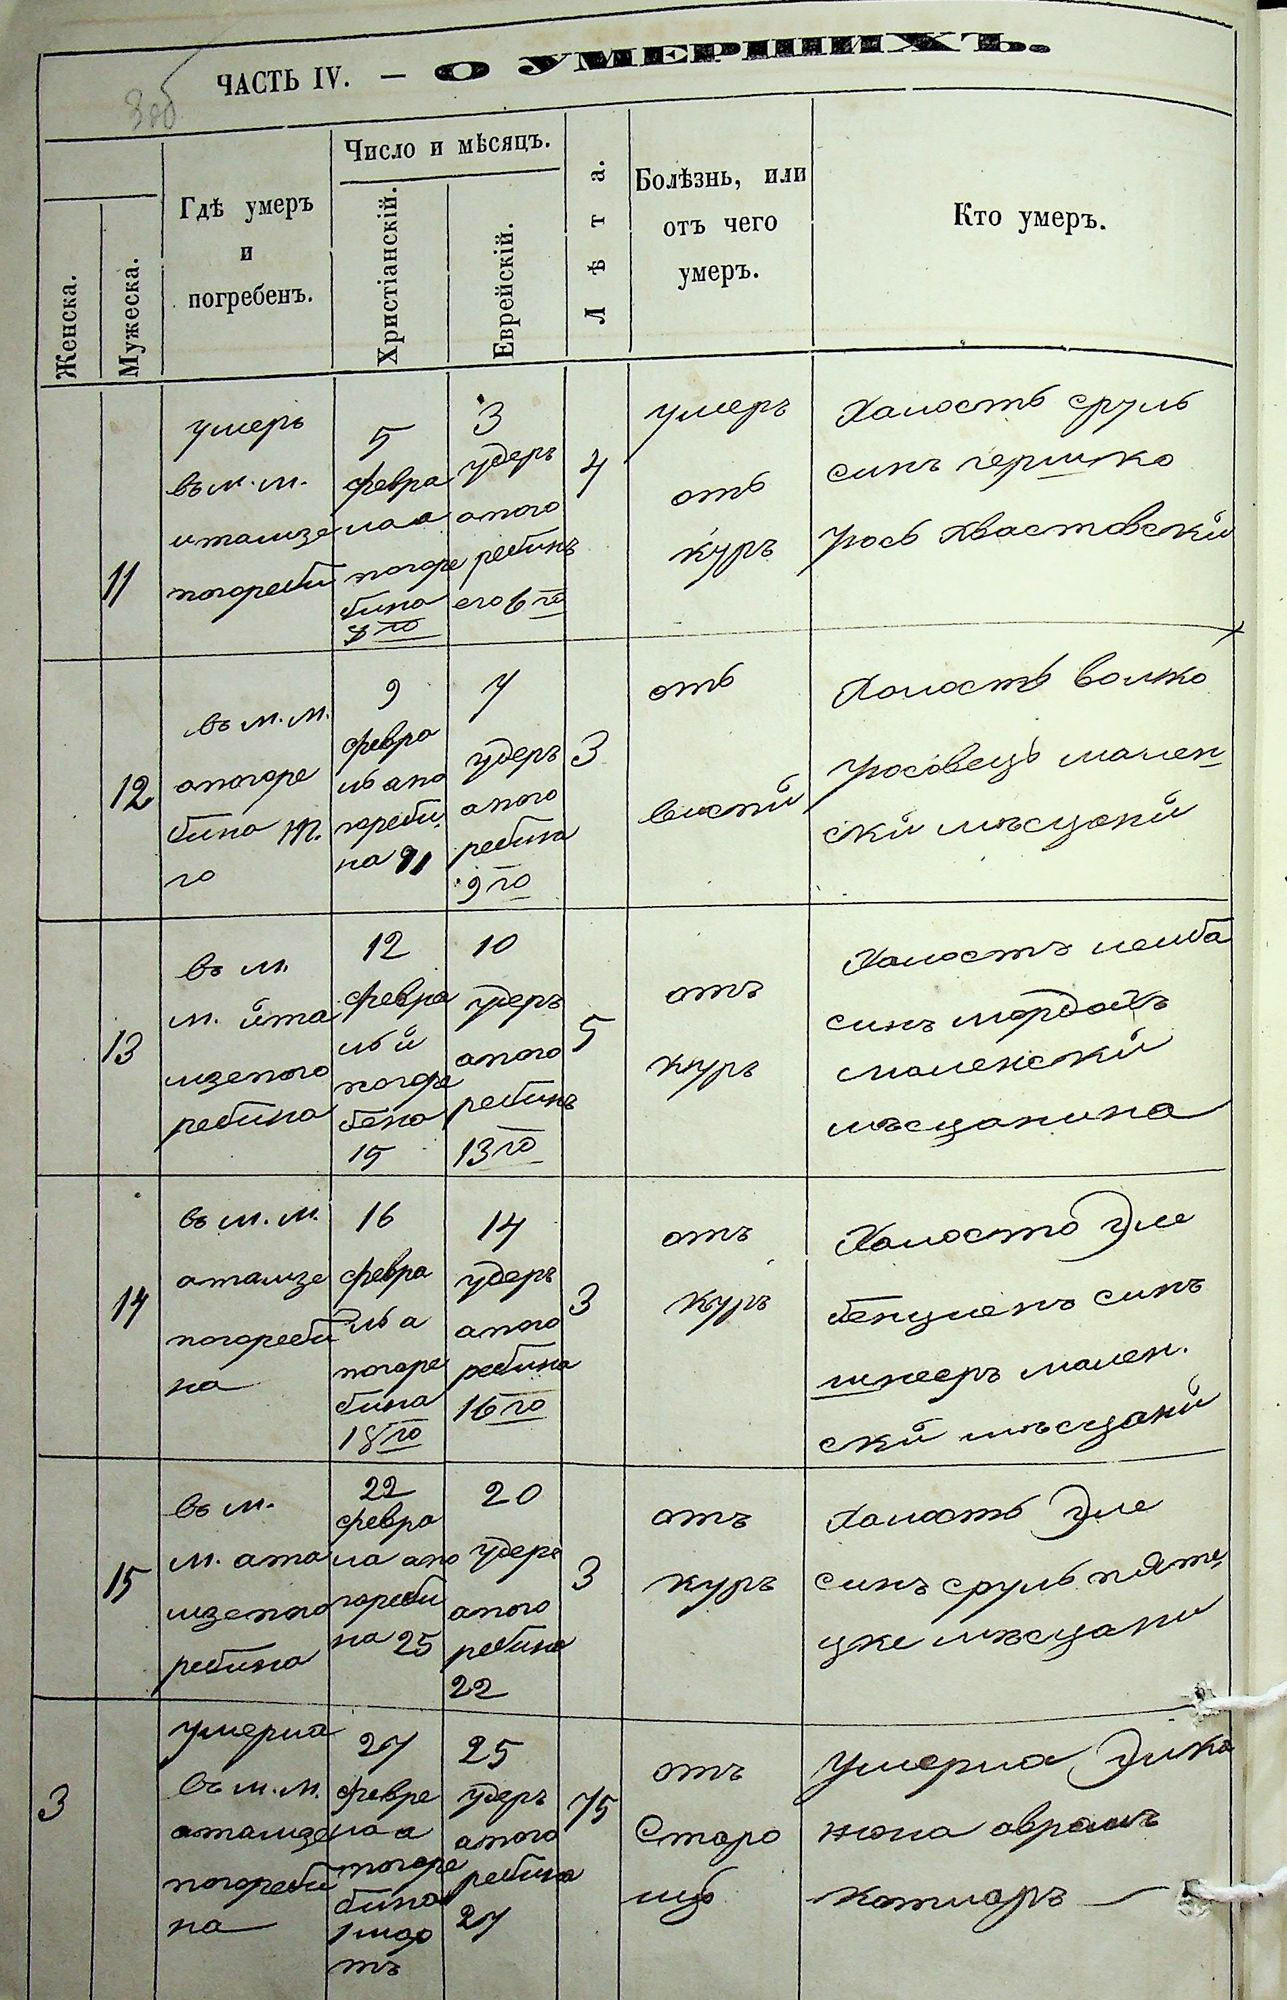 ЧАСТЬ IV. — О УМЕРШИХЪ.
Женска.
Мужеска.
Гдѣ умеръ
и
погребенъ.
Число и мѣсяцъ.
Христіанскій.
Еврейскій.
Лѣта.
Болѣзнь, или
отъ чего
умеръ.
Кто умеръ.
11
умеръ
въ м. м.
погреби
5
февра
погоре
бина
3
удеръ
апого
ребинъ
его 6 го
4
умеръ
отъ
куръ
Халость сруль
синъ гершко
Хвастовскій
12
въ м. м.
апогоре
бина
го
9
февра
ль апо
гореби
на 11
7
удеръ
апого
ребина
9 го
3
отъ
Халость волко
мален
ски мъсцани
13
въ м.
м. йта
мзепого
ребина
12
февра
ль й
погоре
бена
15
10
удеръ
апого
ребинъ
13 го
5
отъ
куръ
Халость лейба
синъ
маленски
мъсцанина
14
въ м. м.
атамзе
погореби
на
16
февра
ль а
погоре
бина
18 го
14
удеръ
апого
ребина
16 го
3
отъ
куръ
Халость Эле
бенциенъ синъ
шнееръ мален.
ски мъсцани
15
въ м.
м. ата
мзепого
ребина
22
февра
ла апо
гореби
на 25
20
удеръ
апого
ребина
22
3
отъ
куръ
Халость Эле
синъ сруль
мъсцани
3
умерла
въ м. м.
атамзе
погореби
на
27
февре
ла а
погоре
бина
1 мар
тъ
25
удеръ
апого
ребина
27
75
отъ
Старо
умерла Элка
жона аврамъ
котляръ